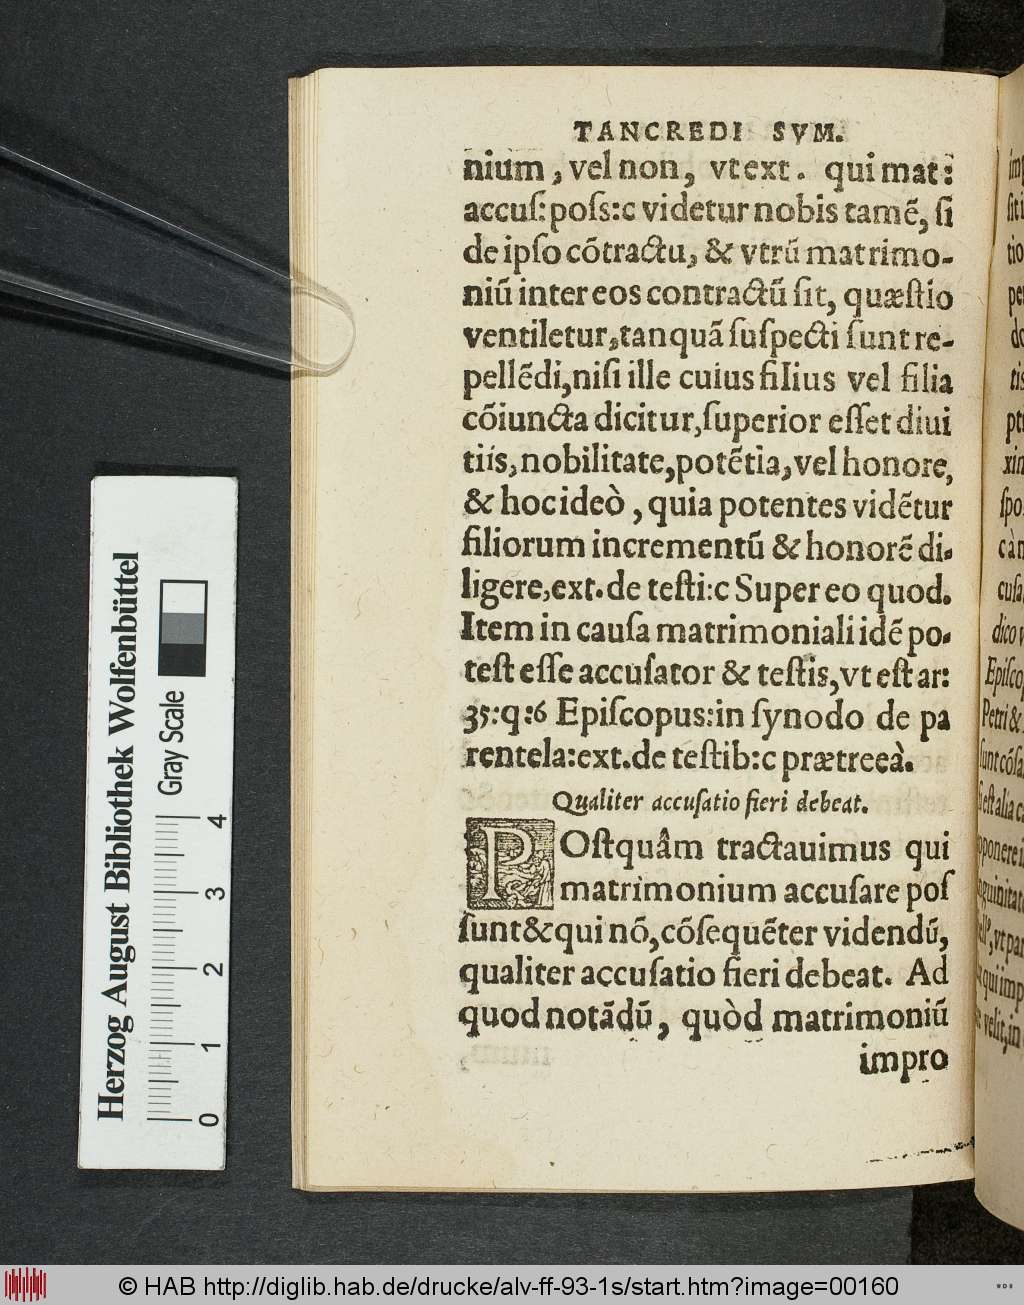 TANCREDI SVM.
nium, vel non, vt ext. qui mat:
accuſ: poſs: c videtur nobis tamẽ, ſi
de ipſo cõtractu, & vtrũ matrimo-
niũ inter eos contractũ ſit, quæſtio
ventiletur, tanquã ſuſpecti ſunt re-
pellẽdi, niſi ille cuius filius vel filia
cõiuncta dicitur, ſuperior eſſet diui
tiis, nobilitate, potẽtia, vel honore,
& hoc ideò, quia potentes vidẽtur
filiorum incrementũ & honorẽ di-
ligere, ext. de teſti: c Super eo quod.
Item in cauſa matrimoniali idẽ po-
teſt eſſe accuſator & teſtis, vt eſt ar:
35: q: 6 Epiſcopus: in ſynodo de pa
rentela: ext. de teſtib: c prætreeà.
Qualiter accuſatio fieri debeat.
POſtquâm tractauimus qui
matrimonium accuſare poſ
ſunt & qui nõ, cõſequẽter videndũ,
qualiter accuſatio fieri debeat. Ad
quod notãdũ, quòd matrimoniũ
impro
Herzog August Bibliothek Wolfenbüttel
Gray Scale
0 1 2 3 4
© HAB http://diglib.hab.de/drucke/alv-ff-93-1s/start.htm?image=00160